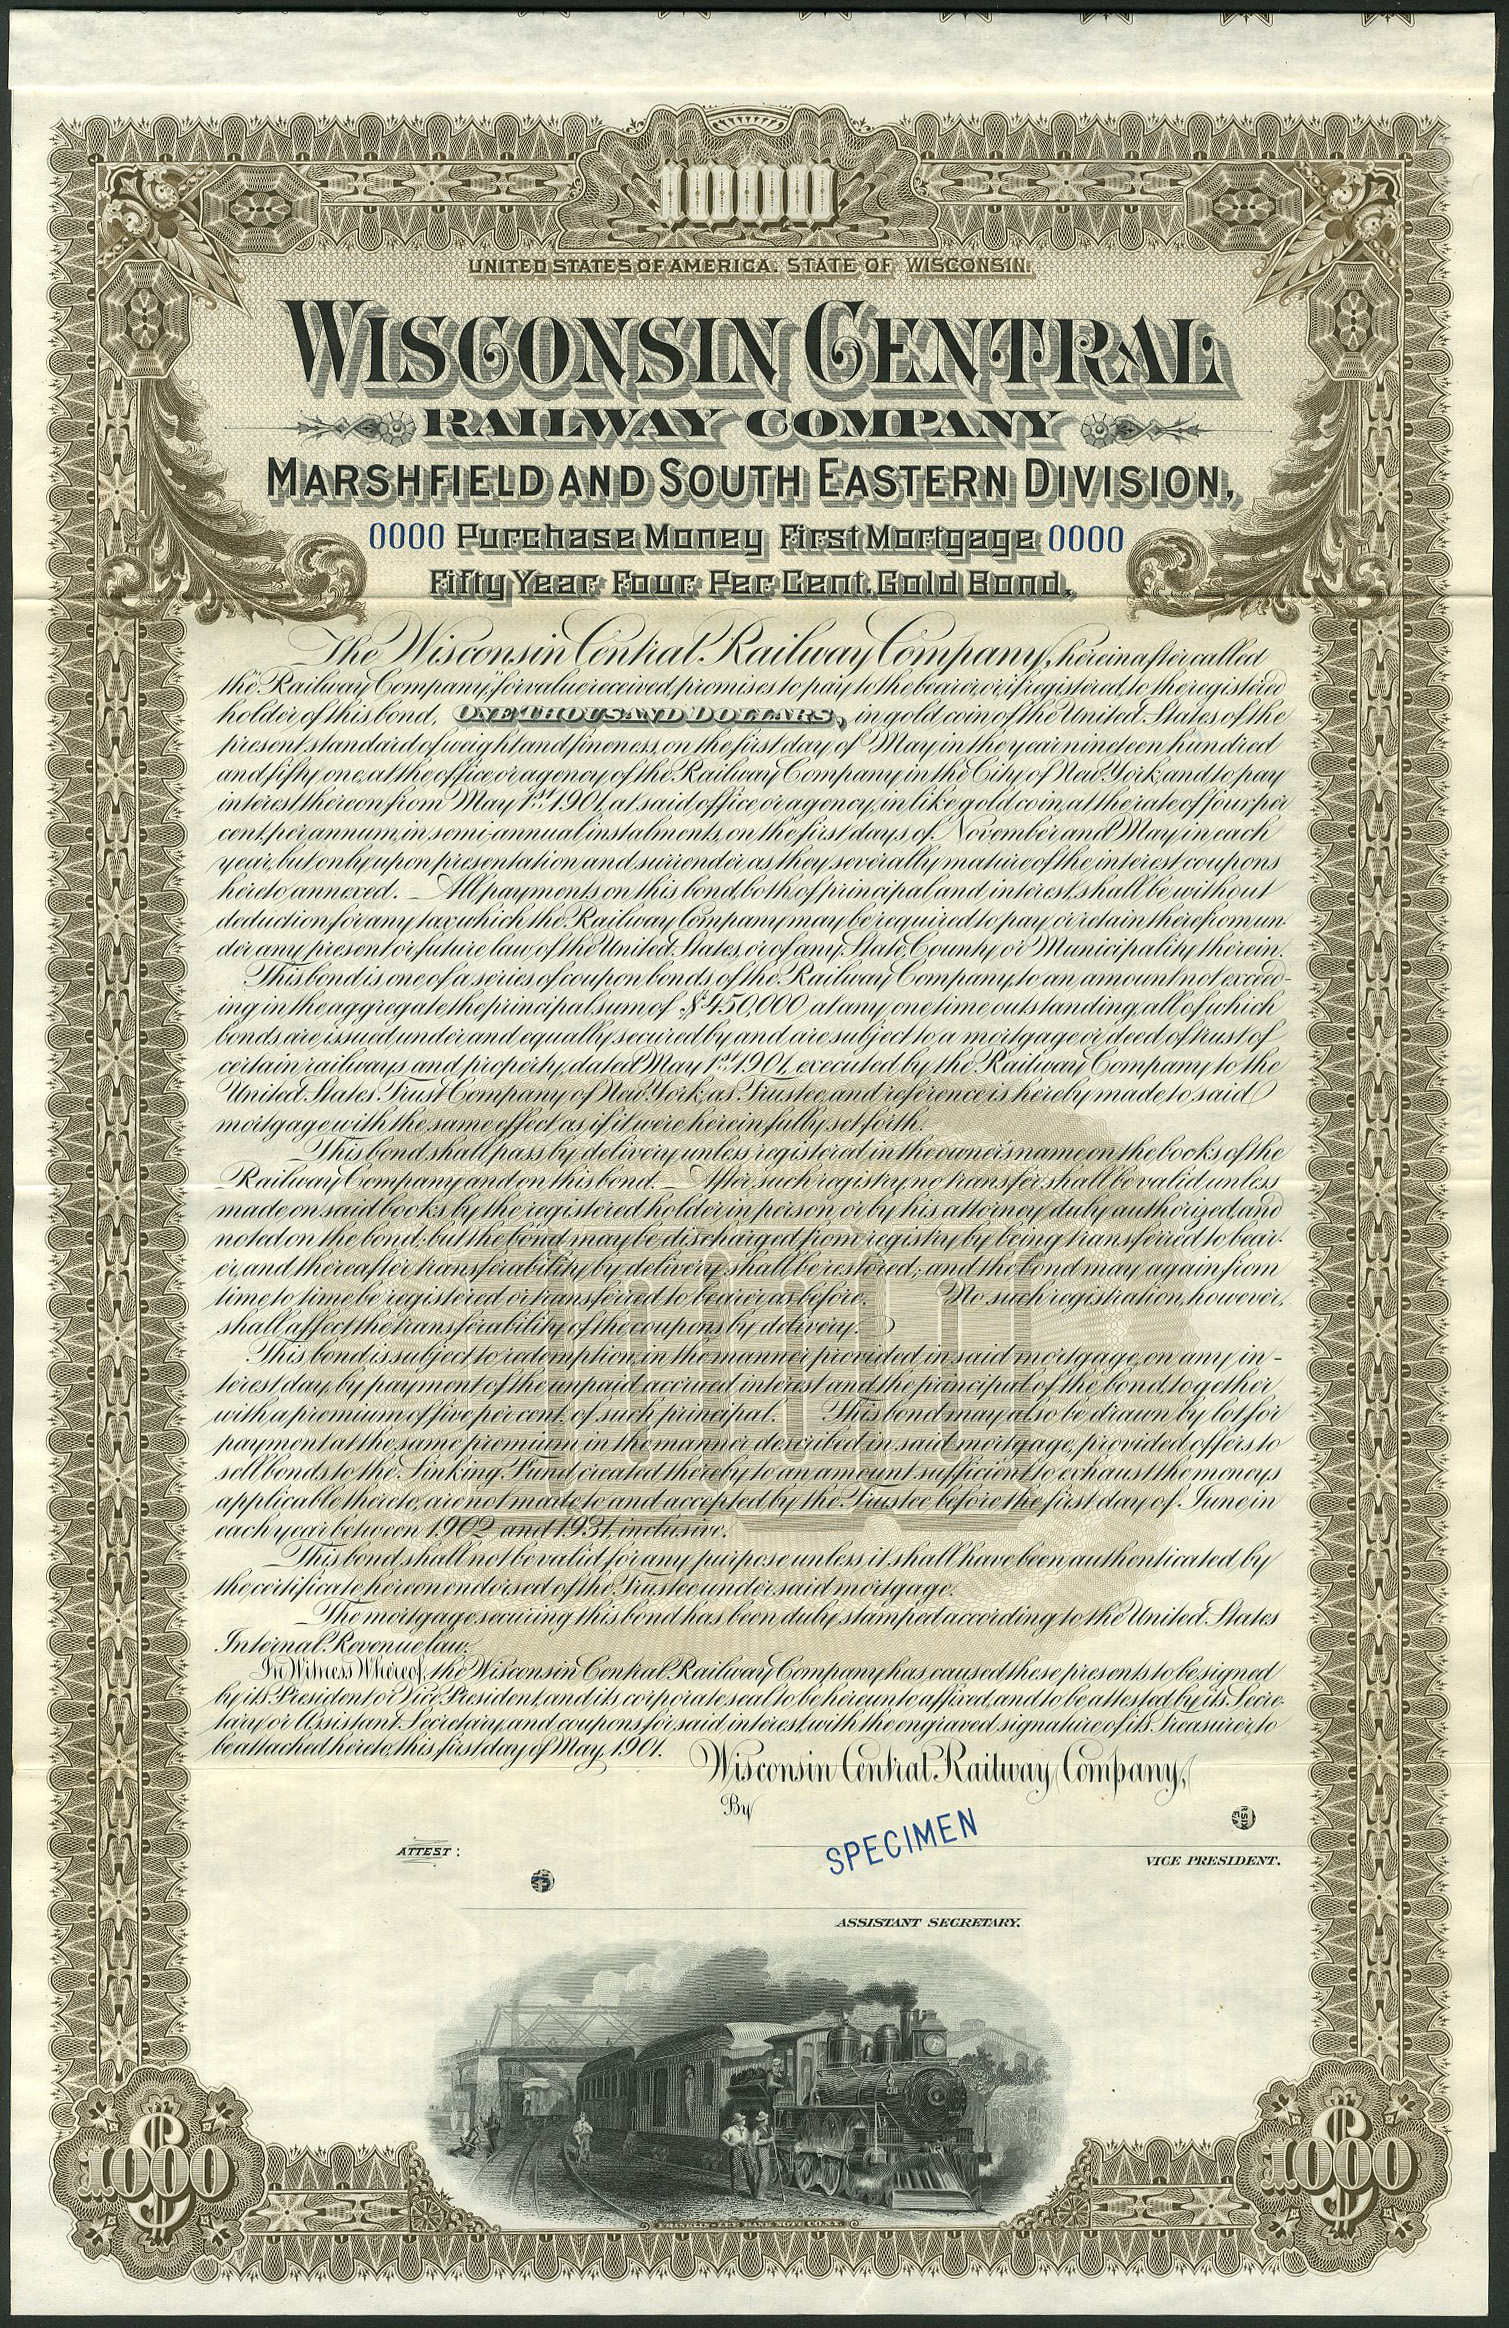 1000
UNITED STATES OF AMERICA. STATE OF WISCONSIN.
WISCONSIN CENTRAL
RAILWAY COMPANY
MARSHFIELD AND SOUTH EASTERN DIVISION,
0000 Purchase Money First Mortgage 0000
Fifty Year Four Per Cent. Gold Bond.
The Wisconsin Central Railway Company, hereinafter called
the "Railway Company", for value received, promises to pay to the bearer, or, if registered, to the registered
holder of this bond, ONE THOUSAND DOLLARS, in gold coin of the United States of the
present standard of weight and fineness, on the first day of May in the year nineteen hundred
and fifty one, at the office or agency of the Railway Company in the City of New York, and to pay
interest thereon from May 1st 1901, at said office or agency, in like gold coin, at the rate of four per
cent. per annum, in semi-annual instalments, on the first days of November and May in each
year, but only upon presentation and surrender as they severally mature of the interest coupons
hereto annexed. All payments on this bond, both of principal and interest, shall be without
deduction for any tax which the Railway Company may be required to pay or retain therefrom un-
der any present or future law of the United States, or of any State, County or Municipality therein.
This bond is one of a series of coupon bonds of the Railway Company to an amount not exceed-
ing in the aggregate the principal sum of $450,000 at any one time outstanding, all of which
bonds are issued under and equally secured by and are subject to, a mortgage or deed of trust of
certain railways and property, dated May 1st 1901, executed by the Railway Company to the
United States Trust Company of New York, as Trustee, and reference is hereby made to said
mortgage with the same effect as if it were herein fully set forth.
This bond shall pass by delivery unless registered in the owner's name on the books of the
Railway Company and on this bond. After such registry, no transfer shall be valid unless
made on said books by the registered holder in person or by his attorney duly authorized, and
noted on the bond; but the bond may be discharged from registry by being transferred to bear-
er, and thereafter transferability by delivery shall be restored; and the bond may again from
time to time be registered or transferred to bearer as before. No such registration, however,
shall affect the transferability of the coupons by delivery.
This bond is subject to redemption, in the manner provided in said mortgage, on any in-
terest day, by payment of the unpaid accrued interest and the principal of the bond, together
with a premium of five per cent. of such principal. This bond may also be drawn by lot for
payment at the same premium in the manner described in said mortgage, provided offers to
sell bonds to the Sinking Fund created thereby to an amount sufficient to exhaust the moneys
applicable thereto, are not made to and accepted by the Trustee before the first day of June in
each year between 1902 and 1931, inclusive.
This bond shall not be valid for any purpose unless it shall have been authenticated by
the certificate hereon endorsed of the Trustee under said mortgage.
The mortgage securing this bond has been duly stamped according to the United States
Internal Revenue law.
In Witness Whereof, the Wisconsin Central Railway Company has caused these presents to be signed
by its President or Vice President, and its corporate seal to be hereunto affixed, and to be attested by its Secre-
tary or Assistant Secretary, and coupons for said interest with the engraved signature of its Treasurer to
be attached hereto, this first day of May, 1901.
Wisconsin Central Railway Company,
By
SPECIMEN
ATTEST:
VICE PRESIDENT.
ASSISTANT SECRETARY.
$1000
$1000
FRANKLIN-LEE BANK NOTE CO. N.Y.